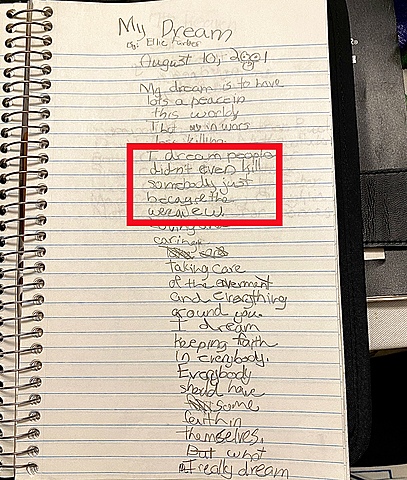 My Dream
By: Ellie
August 10, 2001
My dream is to have
lots a peace in
this world
That in wars
less killing.
I dream people
didn't even kill
somebody just
because the
were Jew.
caring
taking care
of the
and everything
around you.
I dream
keeping faith
In everybody.
Everybody
should have
some
faith in
themselves.
But what
I really dream